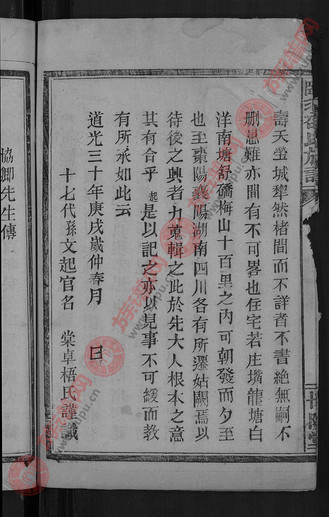 壽夭塋城犂然楮間而不詳者不書絶無嗣不
删思難亦間有不可畧也住宅若庄墈龍塘白
洋南塘舒礄梅山十百里之內可朝發而夕至
也至棗陽襄陽湖南四川各有所遷姑闕焉以
待後之興者力蒐輯之此於先大人根本之意
其有合乎 起 是以記之亦以見事不可緩而行
有所承如此云
道光三十年庚戌歲仲春月 日
十七代孫文起官名 棠卓梧氏謹識
協卿先生傳